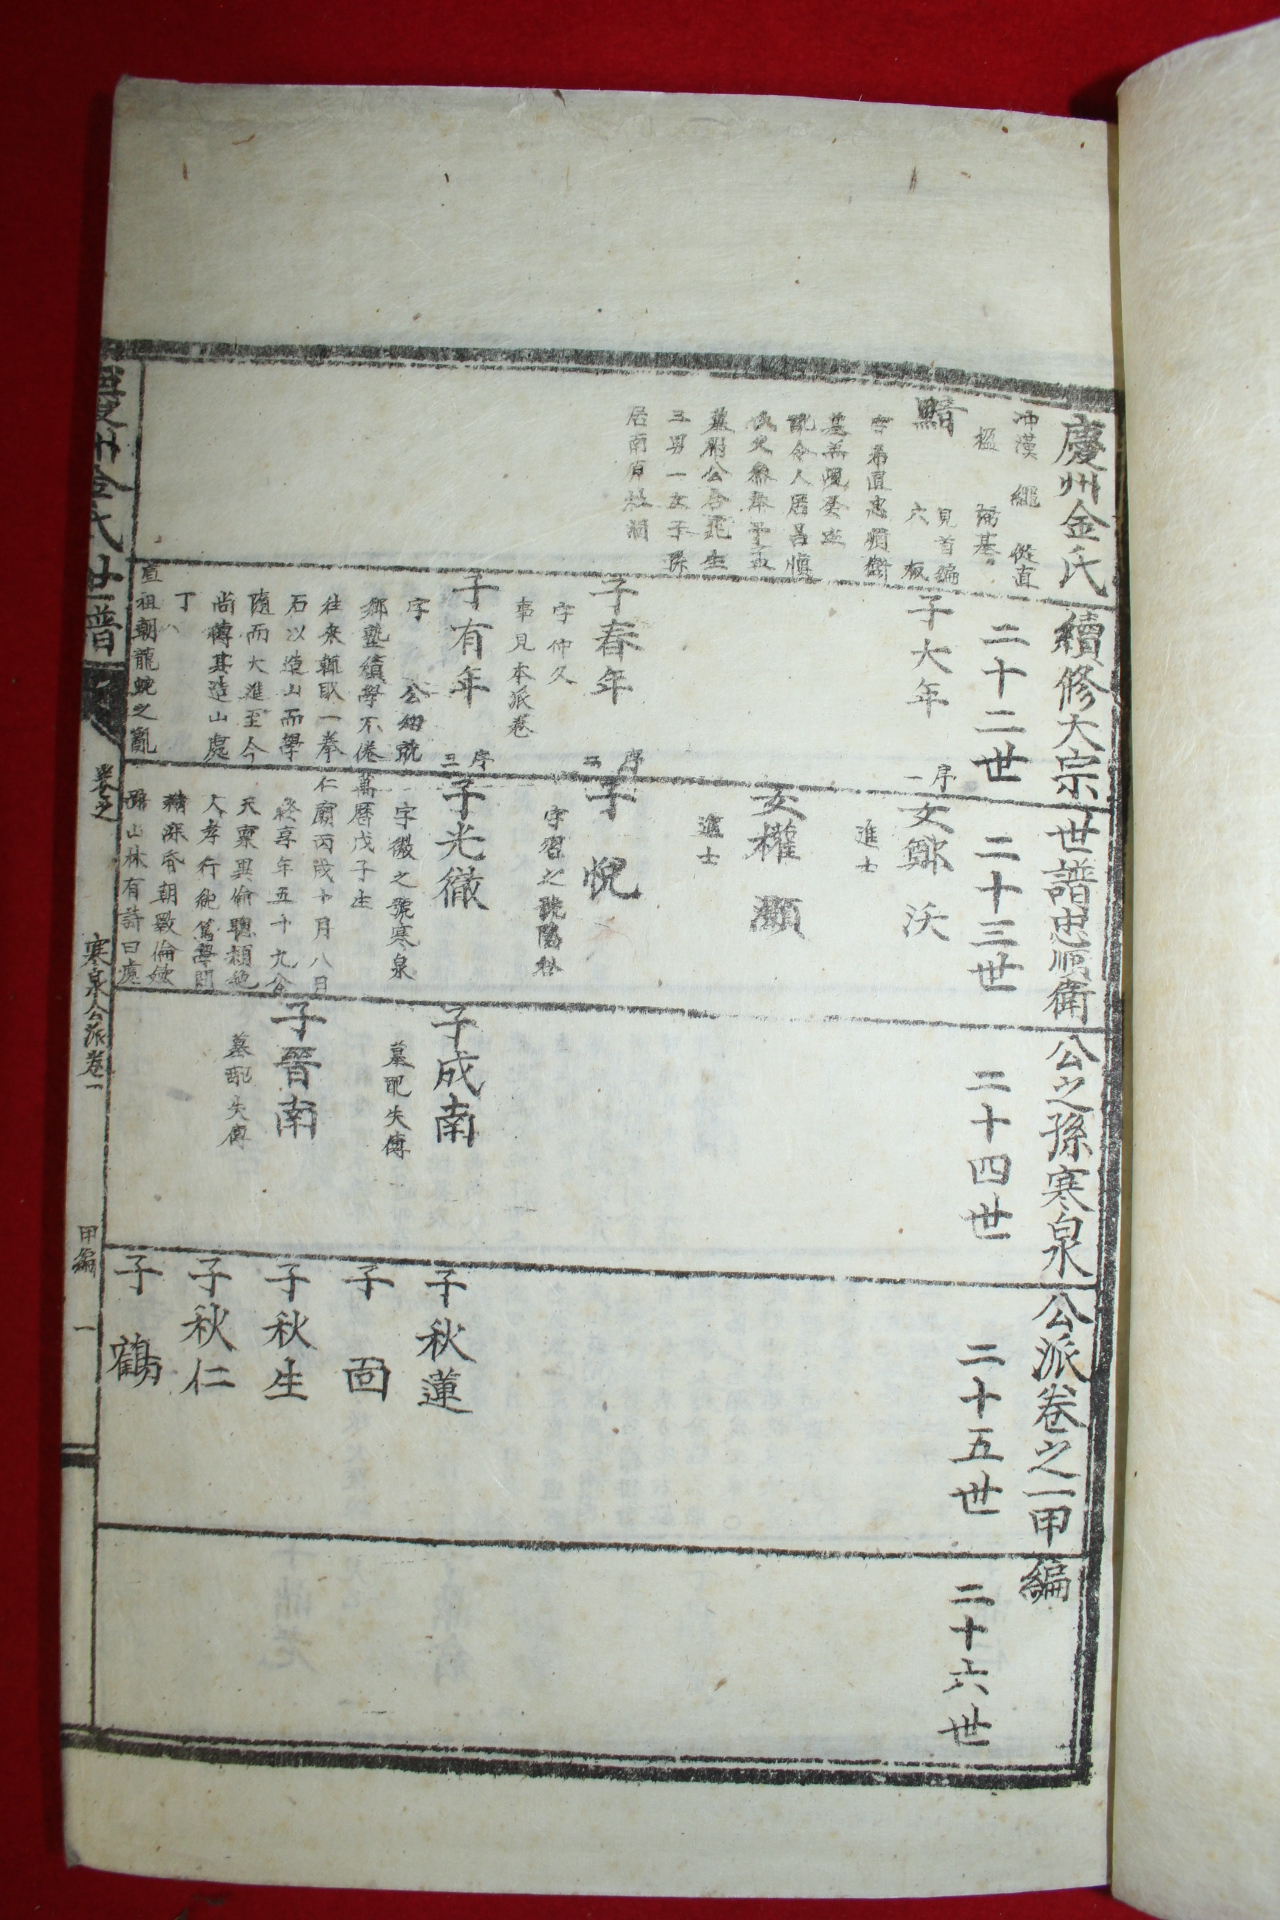 慶州金氏續修大宗世譜忠順衛公之孫寒泉公派卷之一甲編
冲漢 繩 從直
楹
二十二世
二十三世
二十四世
二十五世
二十六世
見首編
六 板
三男一女子孫
子大年
序一
子春年
序二
字仲久
事見本派卷
子有年
序三
字 公幼就
鄉塾績學不倦
往來輒取一拳
石以造山而學
隨而大進至今
尚傳其造山處
直祖朝龍蛇之亂
女鄭沃
進士
女權灝
進士
子悅
子光徹
字徹之號寒泉
萬曆戊子生
仁廟丙戌十月八日
終享年五十九公
天稟異倫聰穎絶
人孝行純篤學問
山林有詩曰處
子成南
墓配失傳
子晉南
墓配失傳
子秋蓮
子固
子秋生
子秋仁
子鶴
慶州金氏世譜
卷之
寒泉公派卷一
甲編
一